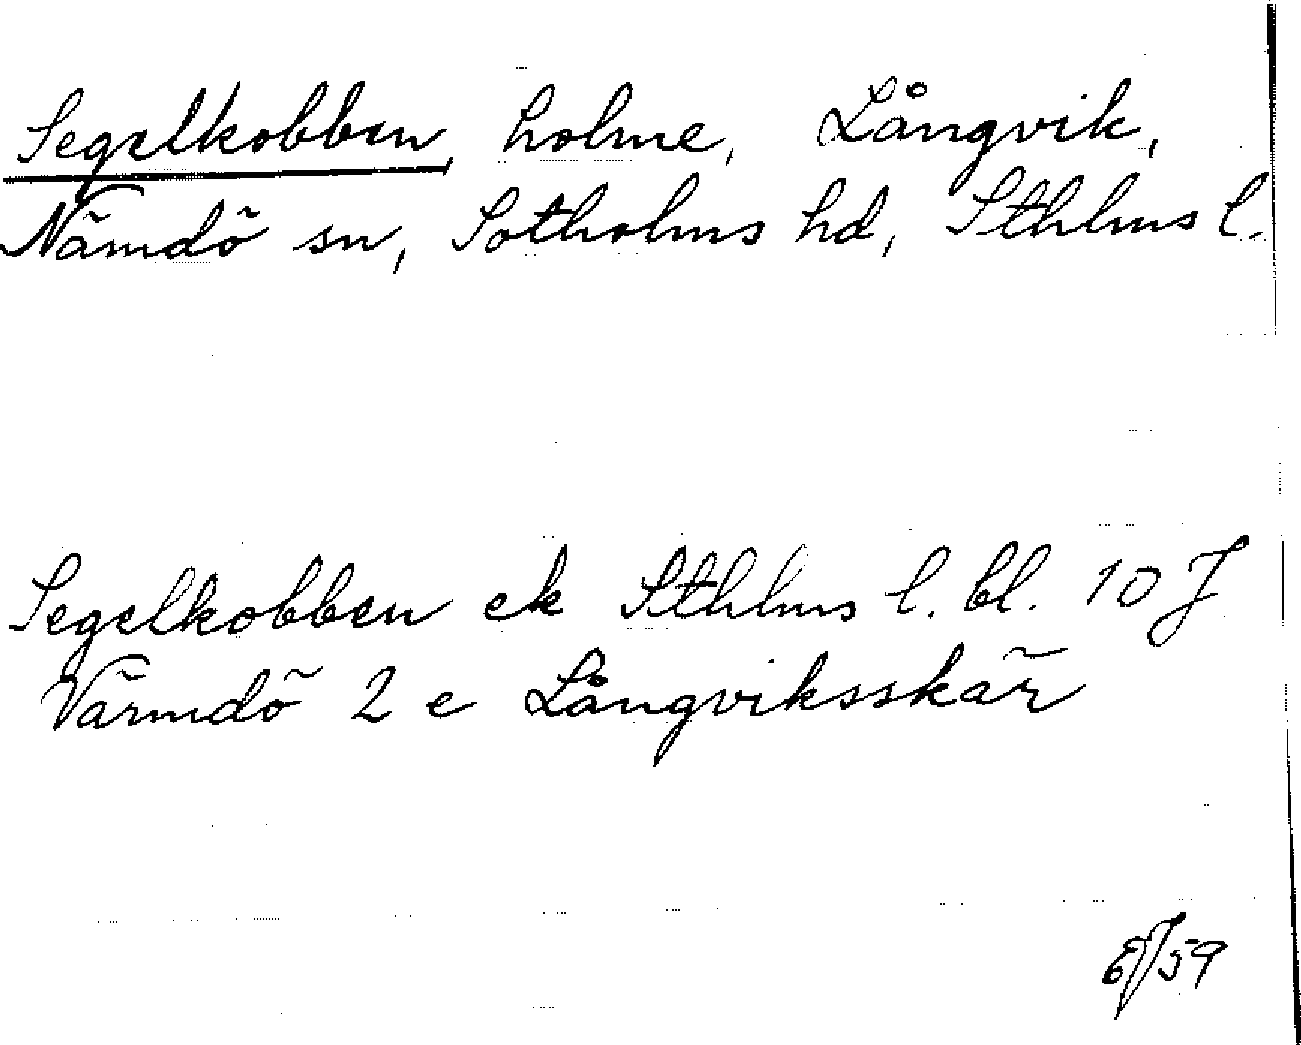 Segelkobben, holme, Långvik,
Nämdö sn, Sotholms hd, Sthlms l.
Segelkobben ek Sthlms l. bl. 10 J
Värmdö 2 e Långviksskär